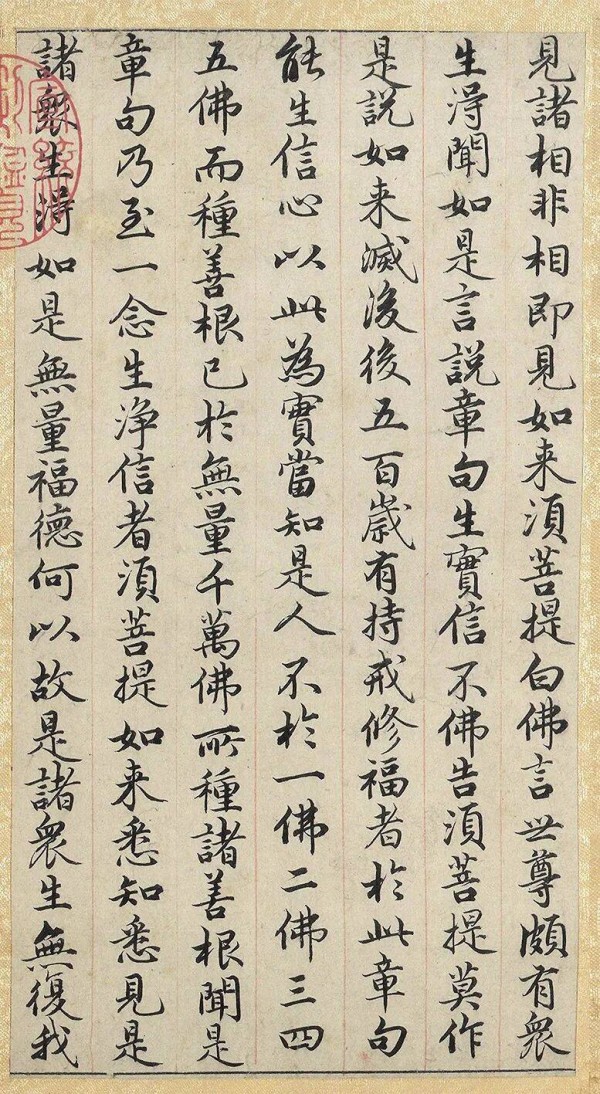 見諸相非相即見如来須菩提白佛言世尊頗有衆
生得聞如是言説章句生實信不佛告須菩提莫作
是説如来滅後後五百歲有持戒修福者於此章句
能生信心以此為實當知是人不於一佛二佛三四
五佛而種善根已於無量千萬佛所種諸善根聞是
章句乃至一念生浄信者須菩提如来悉知悉見是
諸衆生得如是無量福德何以故是諸衆生無復我